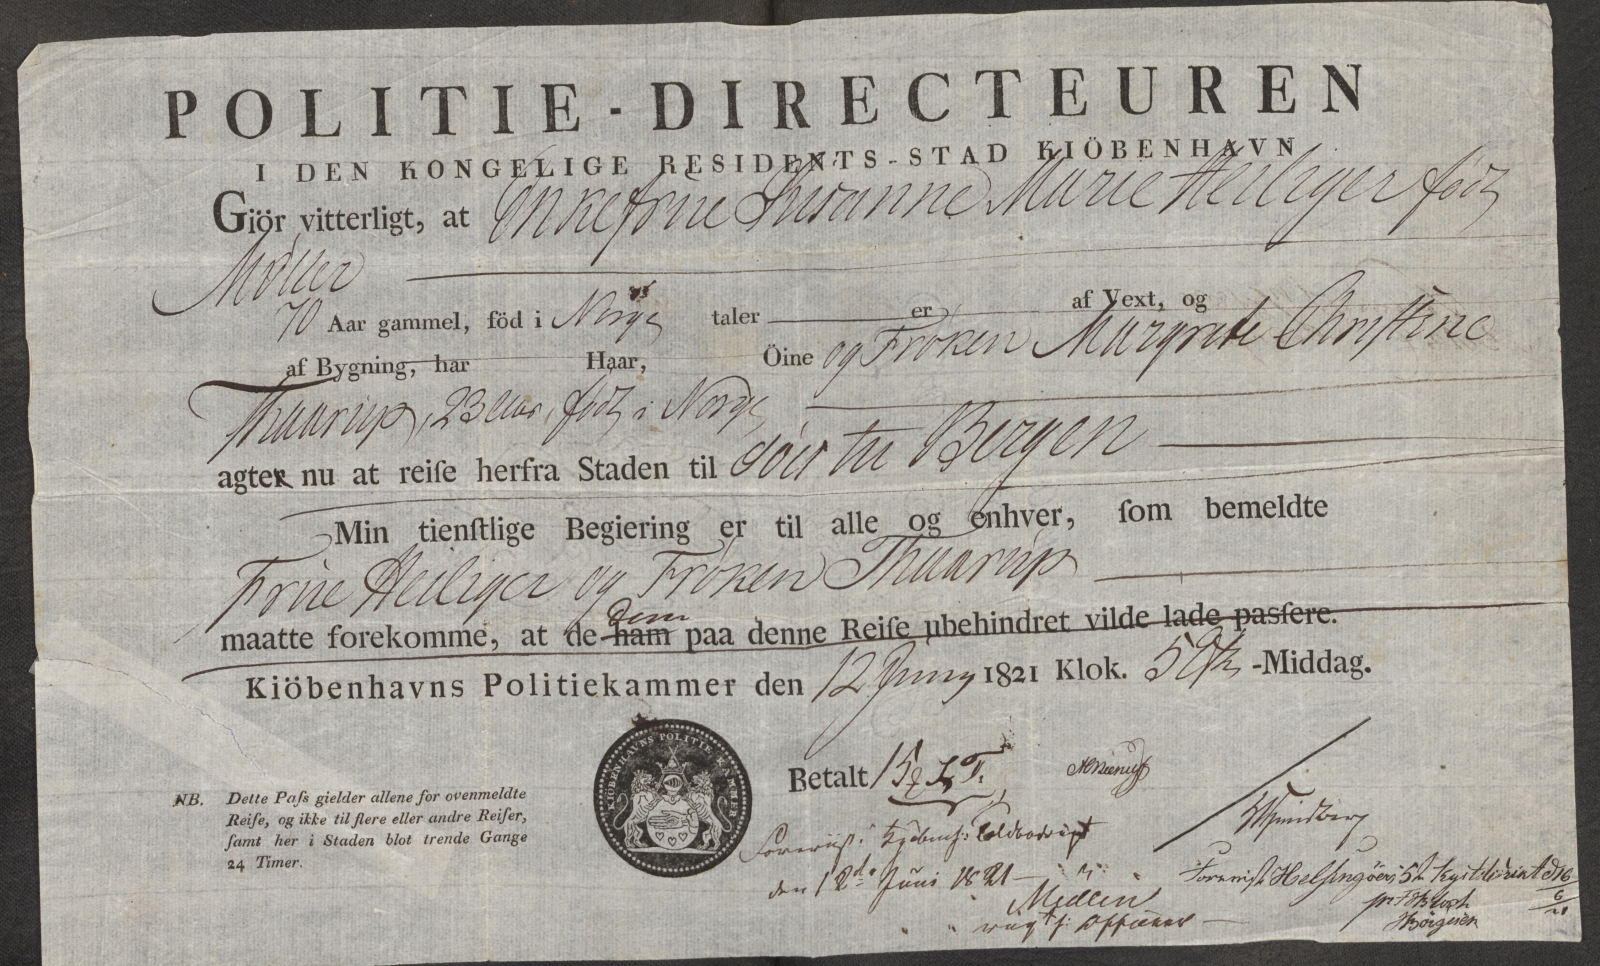 POLITIE-DIRECTEUREN
I DEN KONGELIGE RESIDENTS-STAD KIÖBENHAVN
Giör vitterligt, at Enkefrue Susanne Marie Heiliger födt
Møller
70 Aar gammel, föd i Norge taler er af Vext, og
af Bygning, har Haar, Öine og Frøken Margrete Christine
Thaarup, 23 Aar, födt i Norge
agter nu at reiſe herfra Staden til Söes til Bergen
Min tienſtlige Begiering er til alle og enhver, ſom bemeldte
Frue Heiliger og Frøken Thaarup
maatte forekomme, at de ham dem paa denne Reiſe ubehindret vilde lade paſſere.
Kiöbenhavns Politiekammer den 12 Juny 1821 Klok. 5 Eft -Middag.
KIÖBENHAVNS POLITIE KAMMER
Betalt
NB. Dette Paſs gielder allene for ovenmeldte
Reiſe, og ikke til flere eller andre Reiſer,
ſamt her i Staden blot trende Gange
24 Timer.
Foreviist i Kjøbenh:
den 12 Juni 1821
Forevist Helsingöers